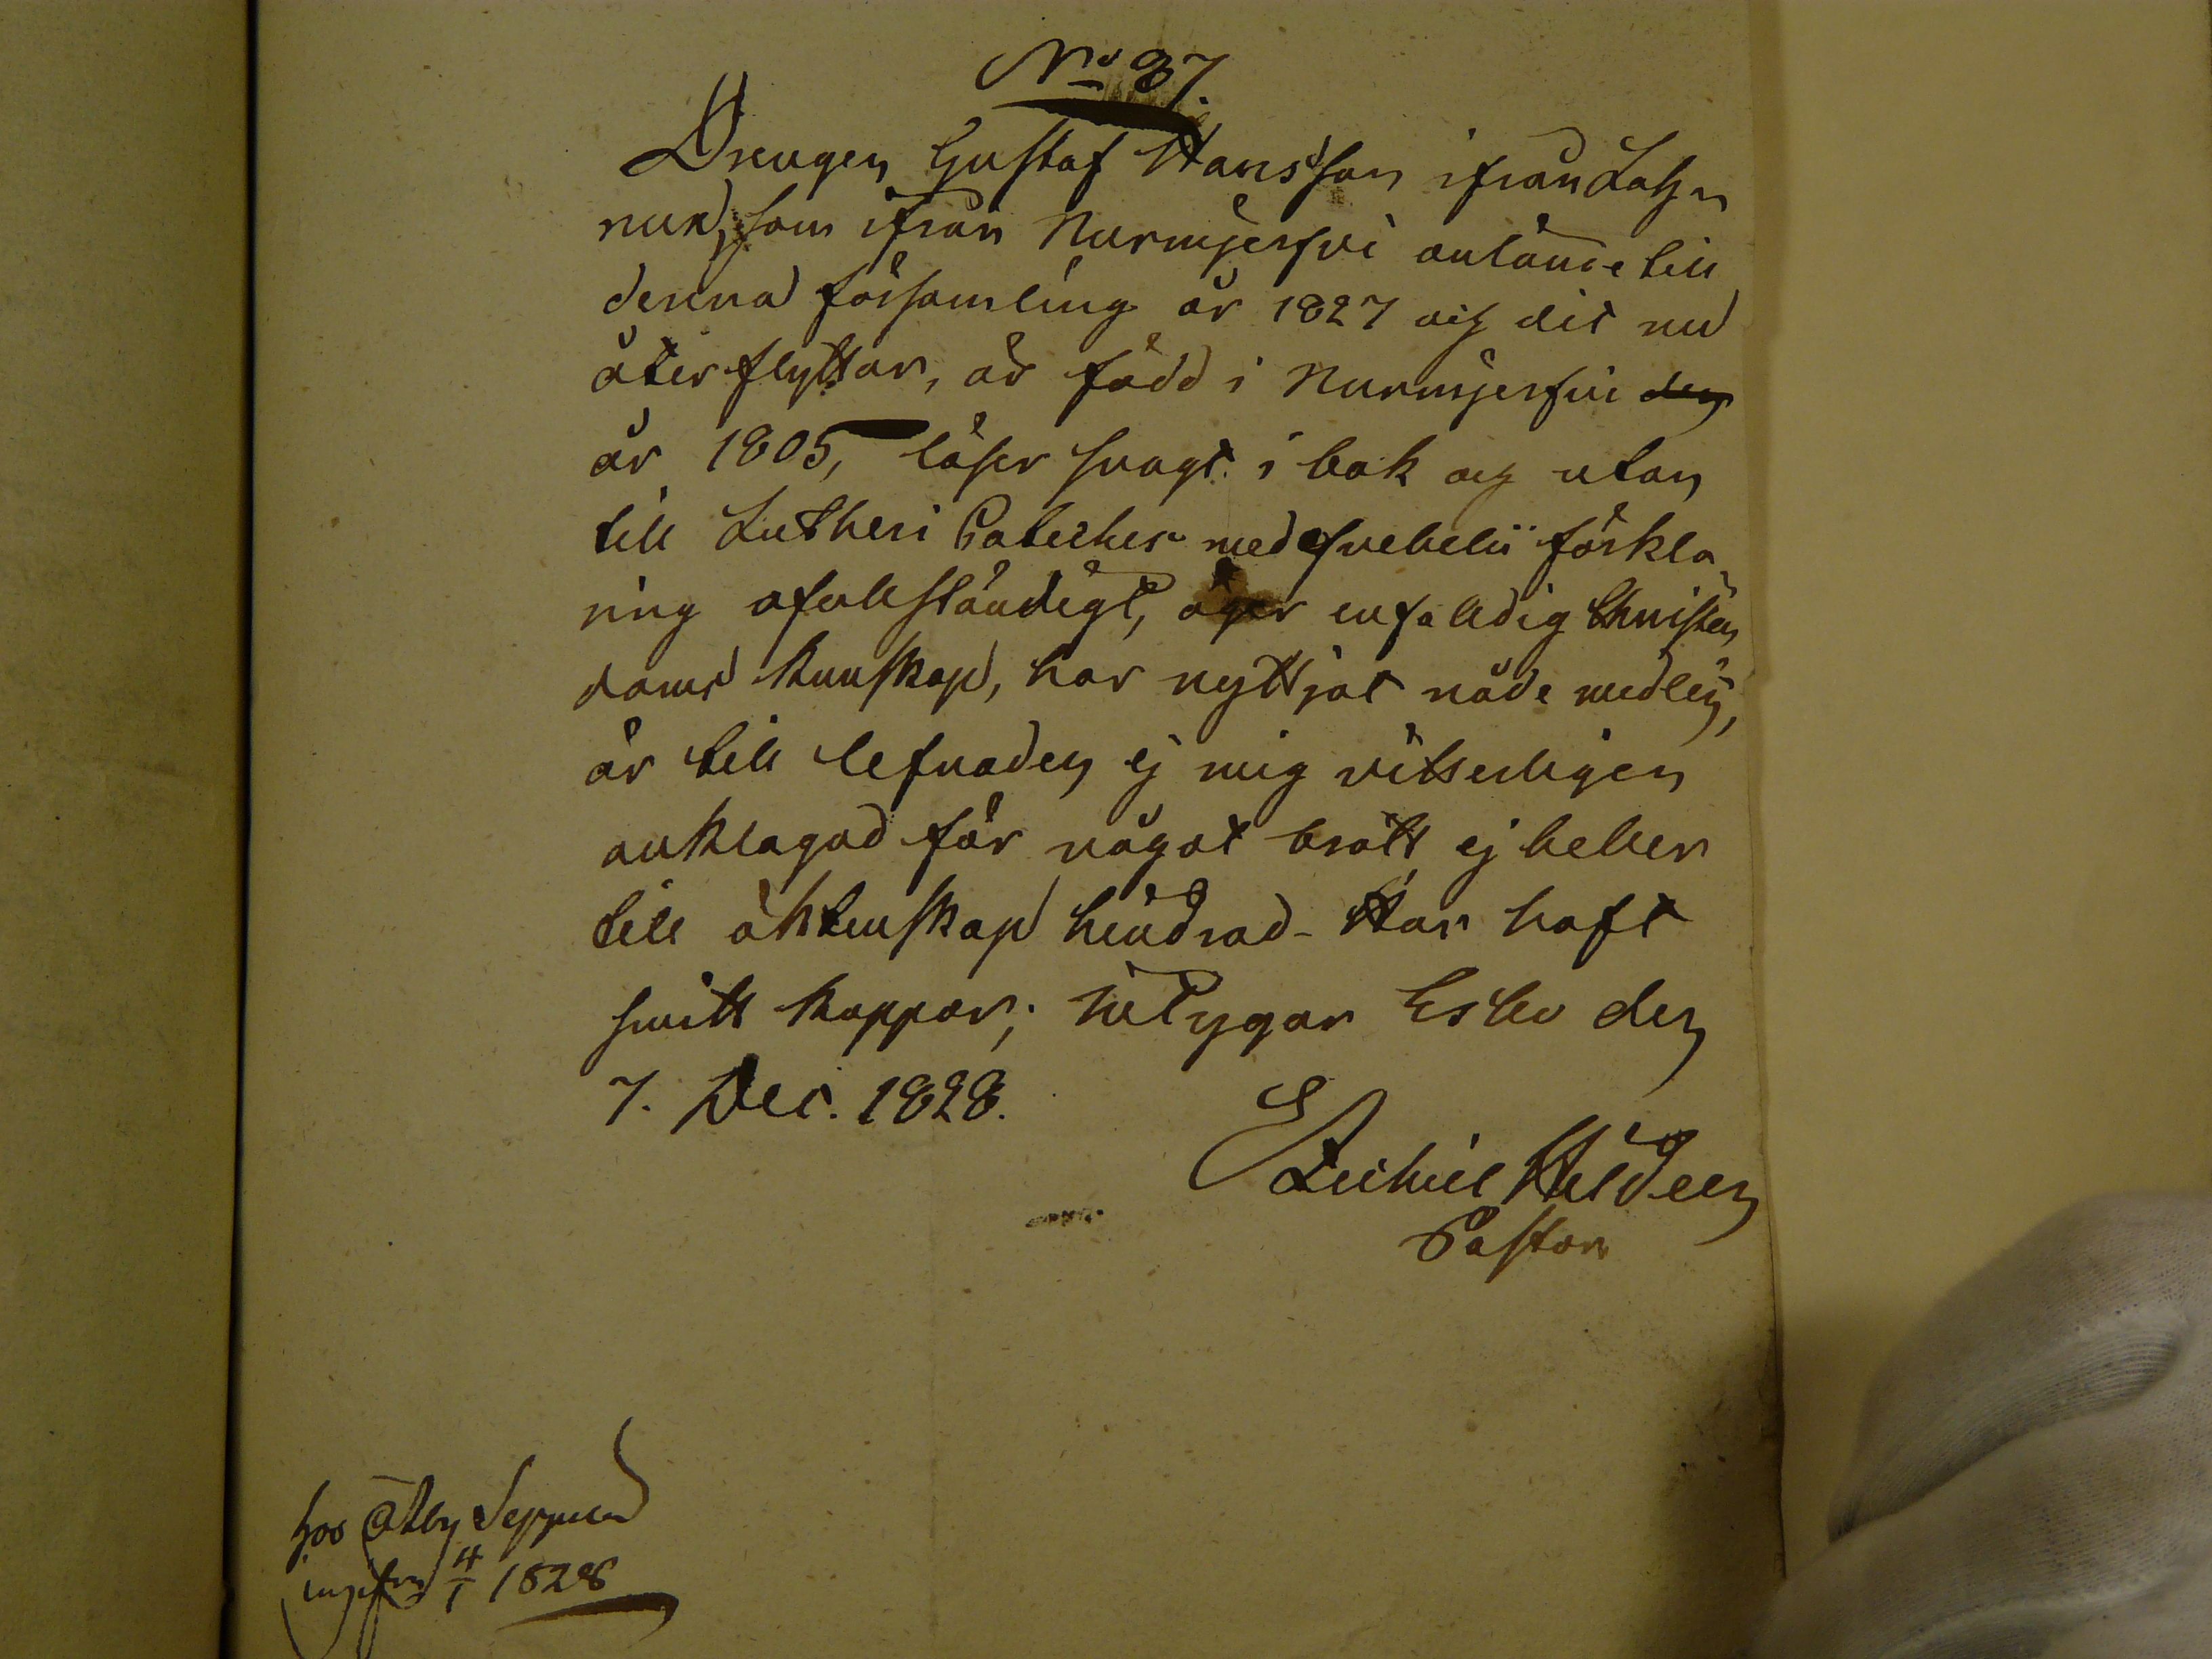 No 37.
Drengen Gustaf Hansson ifrån Lahn
rus, som ifrån Nurmjerfvi anlände till
denna församling år 1827 och dit nu
åter flyttar, är född i Nurmjerfvi den
år 1805, läser svagt i bok och utan
till Lutheri Cateches med Svebelii förkla
ring ofullständigt, äger enfaldig Christen
doms kunskap, har nyttjat nåde medlen,
är till lefnaden ej mig vitterligen
anklagad för något brott ej heller
till äktenskap hindrad - Har haft
smitt koppor; betygar Esbo den
7. Dec. 1828.
Ezechiel Hildeen
Pastor
hos Åtby Seppälä
1828